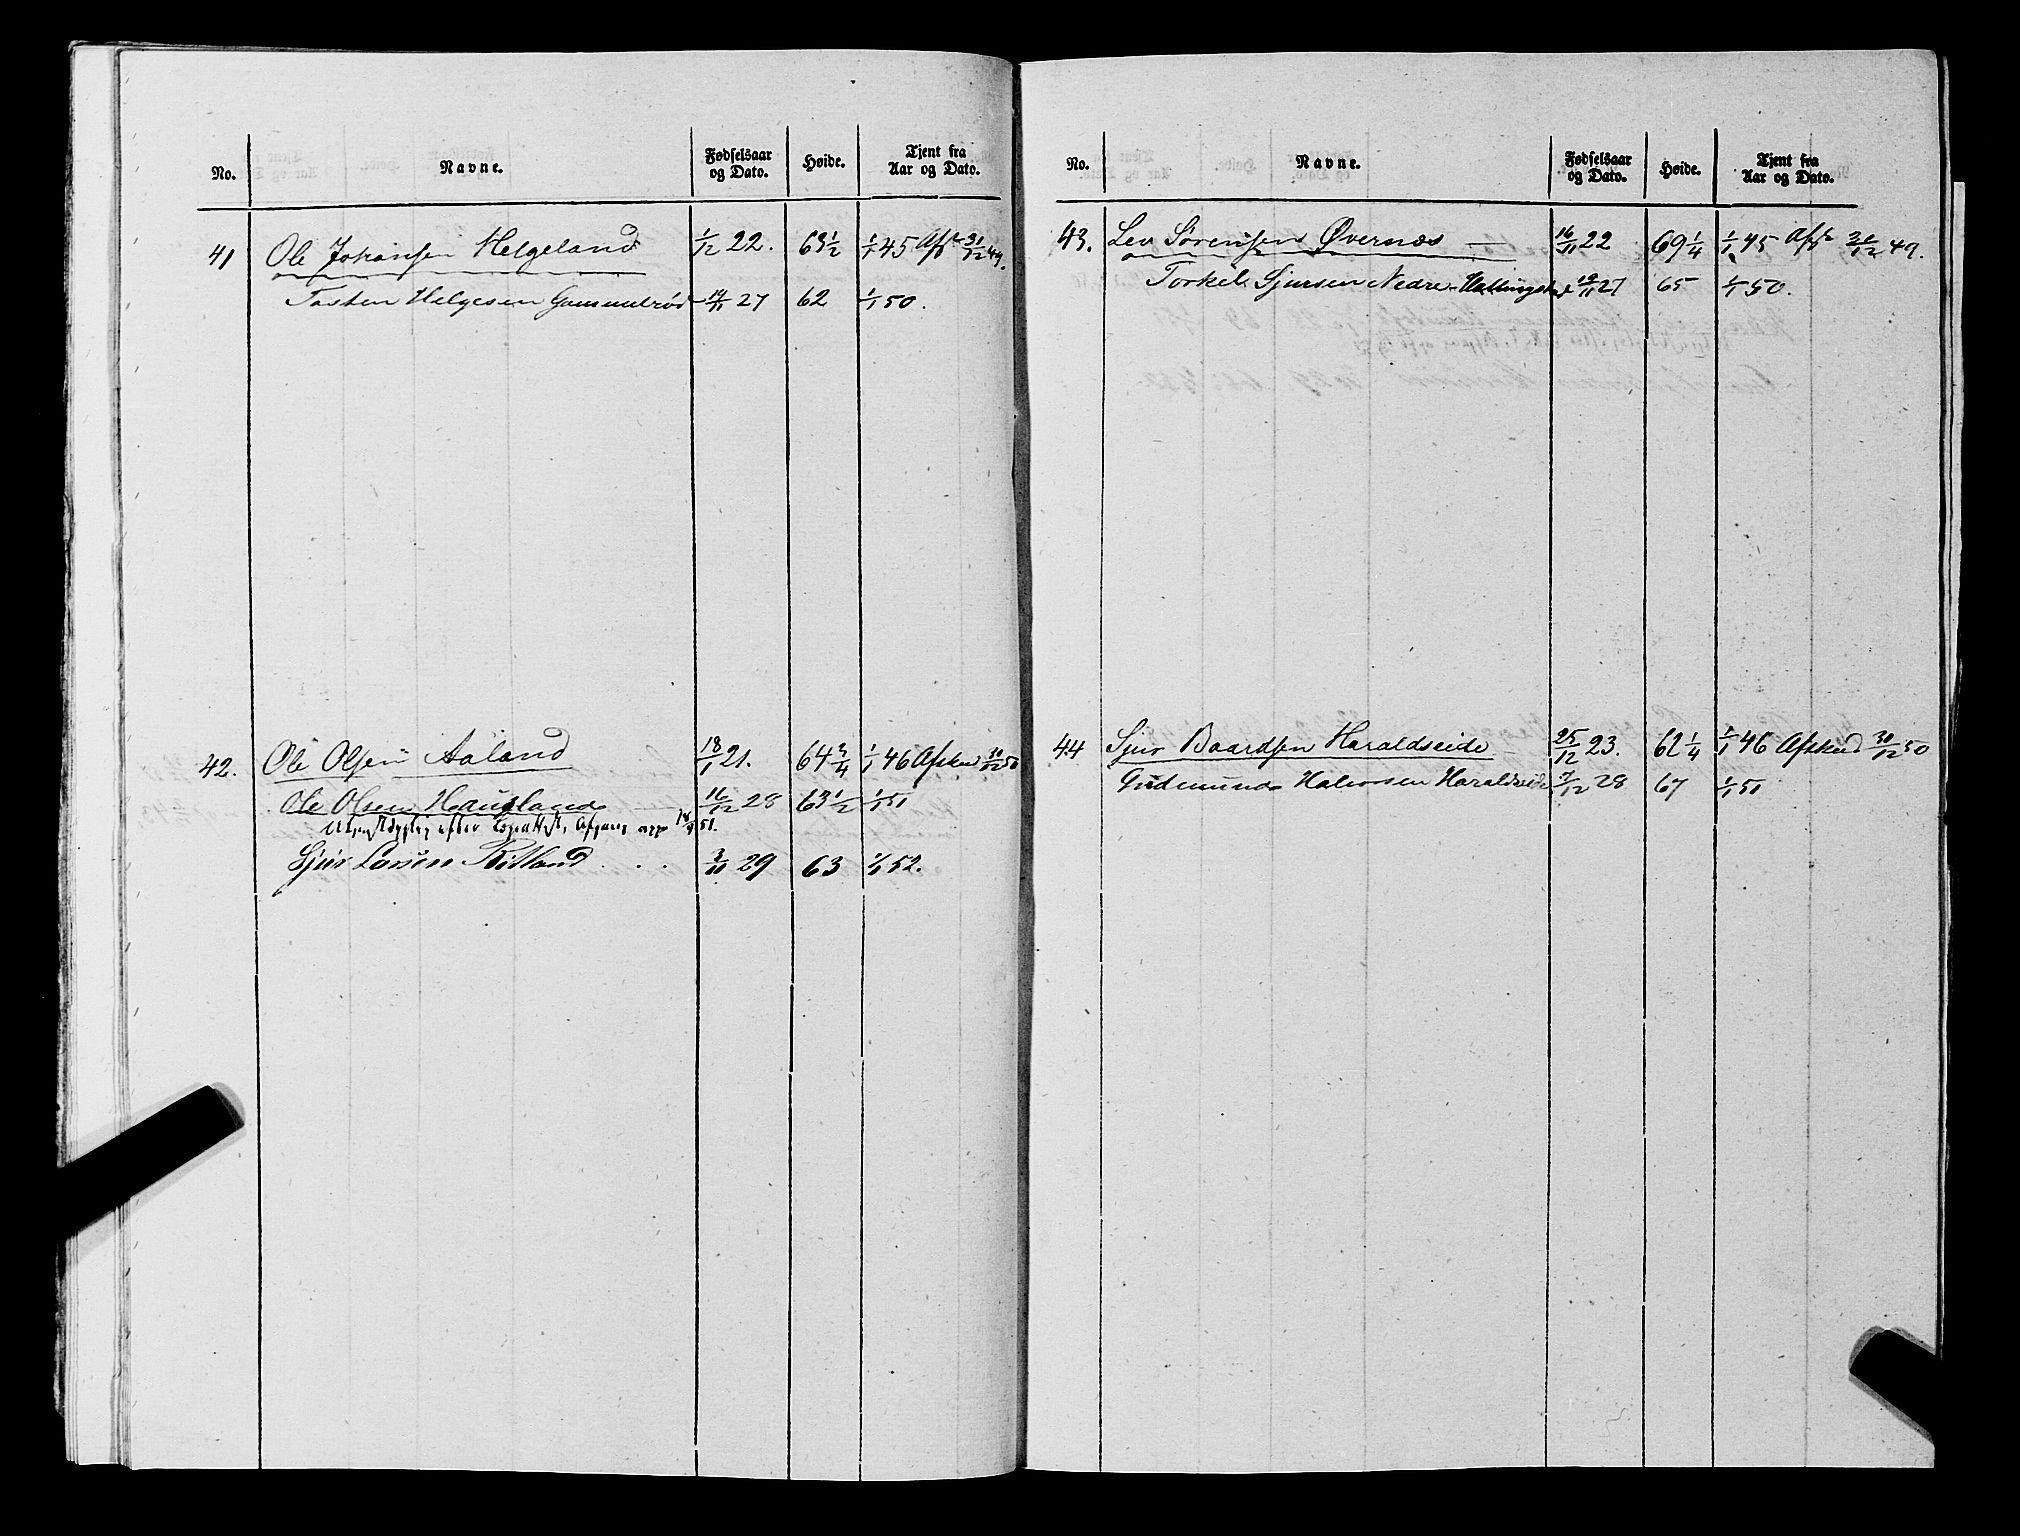 No. Navne. Fødselsaar og Dato. Høide. Tjent fra Aar og Dato.
41 Ole Johansen Helgeland 1/12 22. 63 1/2 1/1 45 Afsk 31/12 49.
Tosten Helgesen Gammelrød 14/11 27 62 1/1 50.
42. Ole Olsen Aaland 18/1 21. 64 3/4 1/1 46 Afsked 30/12 50
Ole Olsen Haugland 16/12 28 63 1/2 1/1 51
efter Afgang 51.
Sjur Larsen Røtland 3/11 29 63 1/1 52.
No. Navne. Fødselsaar og Dato. Høide. Tjent fra Aar og Dato.
43. Lev Sørensen Øvernæs 16/11 22 69 1/4 1/1 45 Afsk 31/12 49.
Torkel Sjursen Nedre-Hallingstad 19/11 27 65 1/1 50.
44 Sjur Baardsen Haraldseide 25/12 23. 62 1/4 1/1 46 Afsked 30/12 50
Gudemund Halvorsen Haraldseide 7/12 28 67 1/1 51